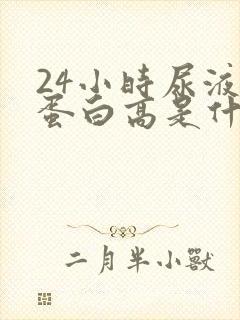 24小時尿液
蛋白高是什
二月半小獸